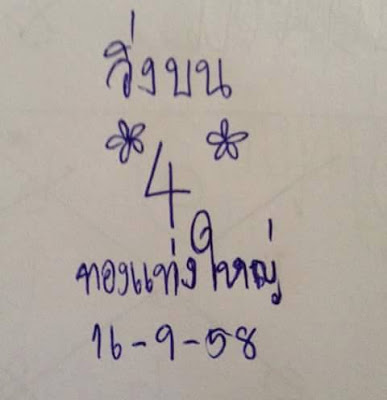 วิ่งบน
* 4 *
ทองแท่งใหญ่
16-9-58